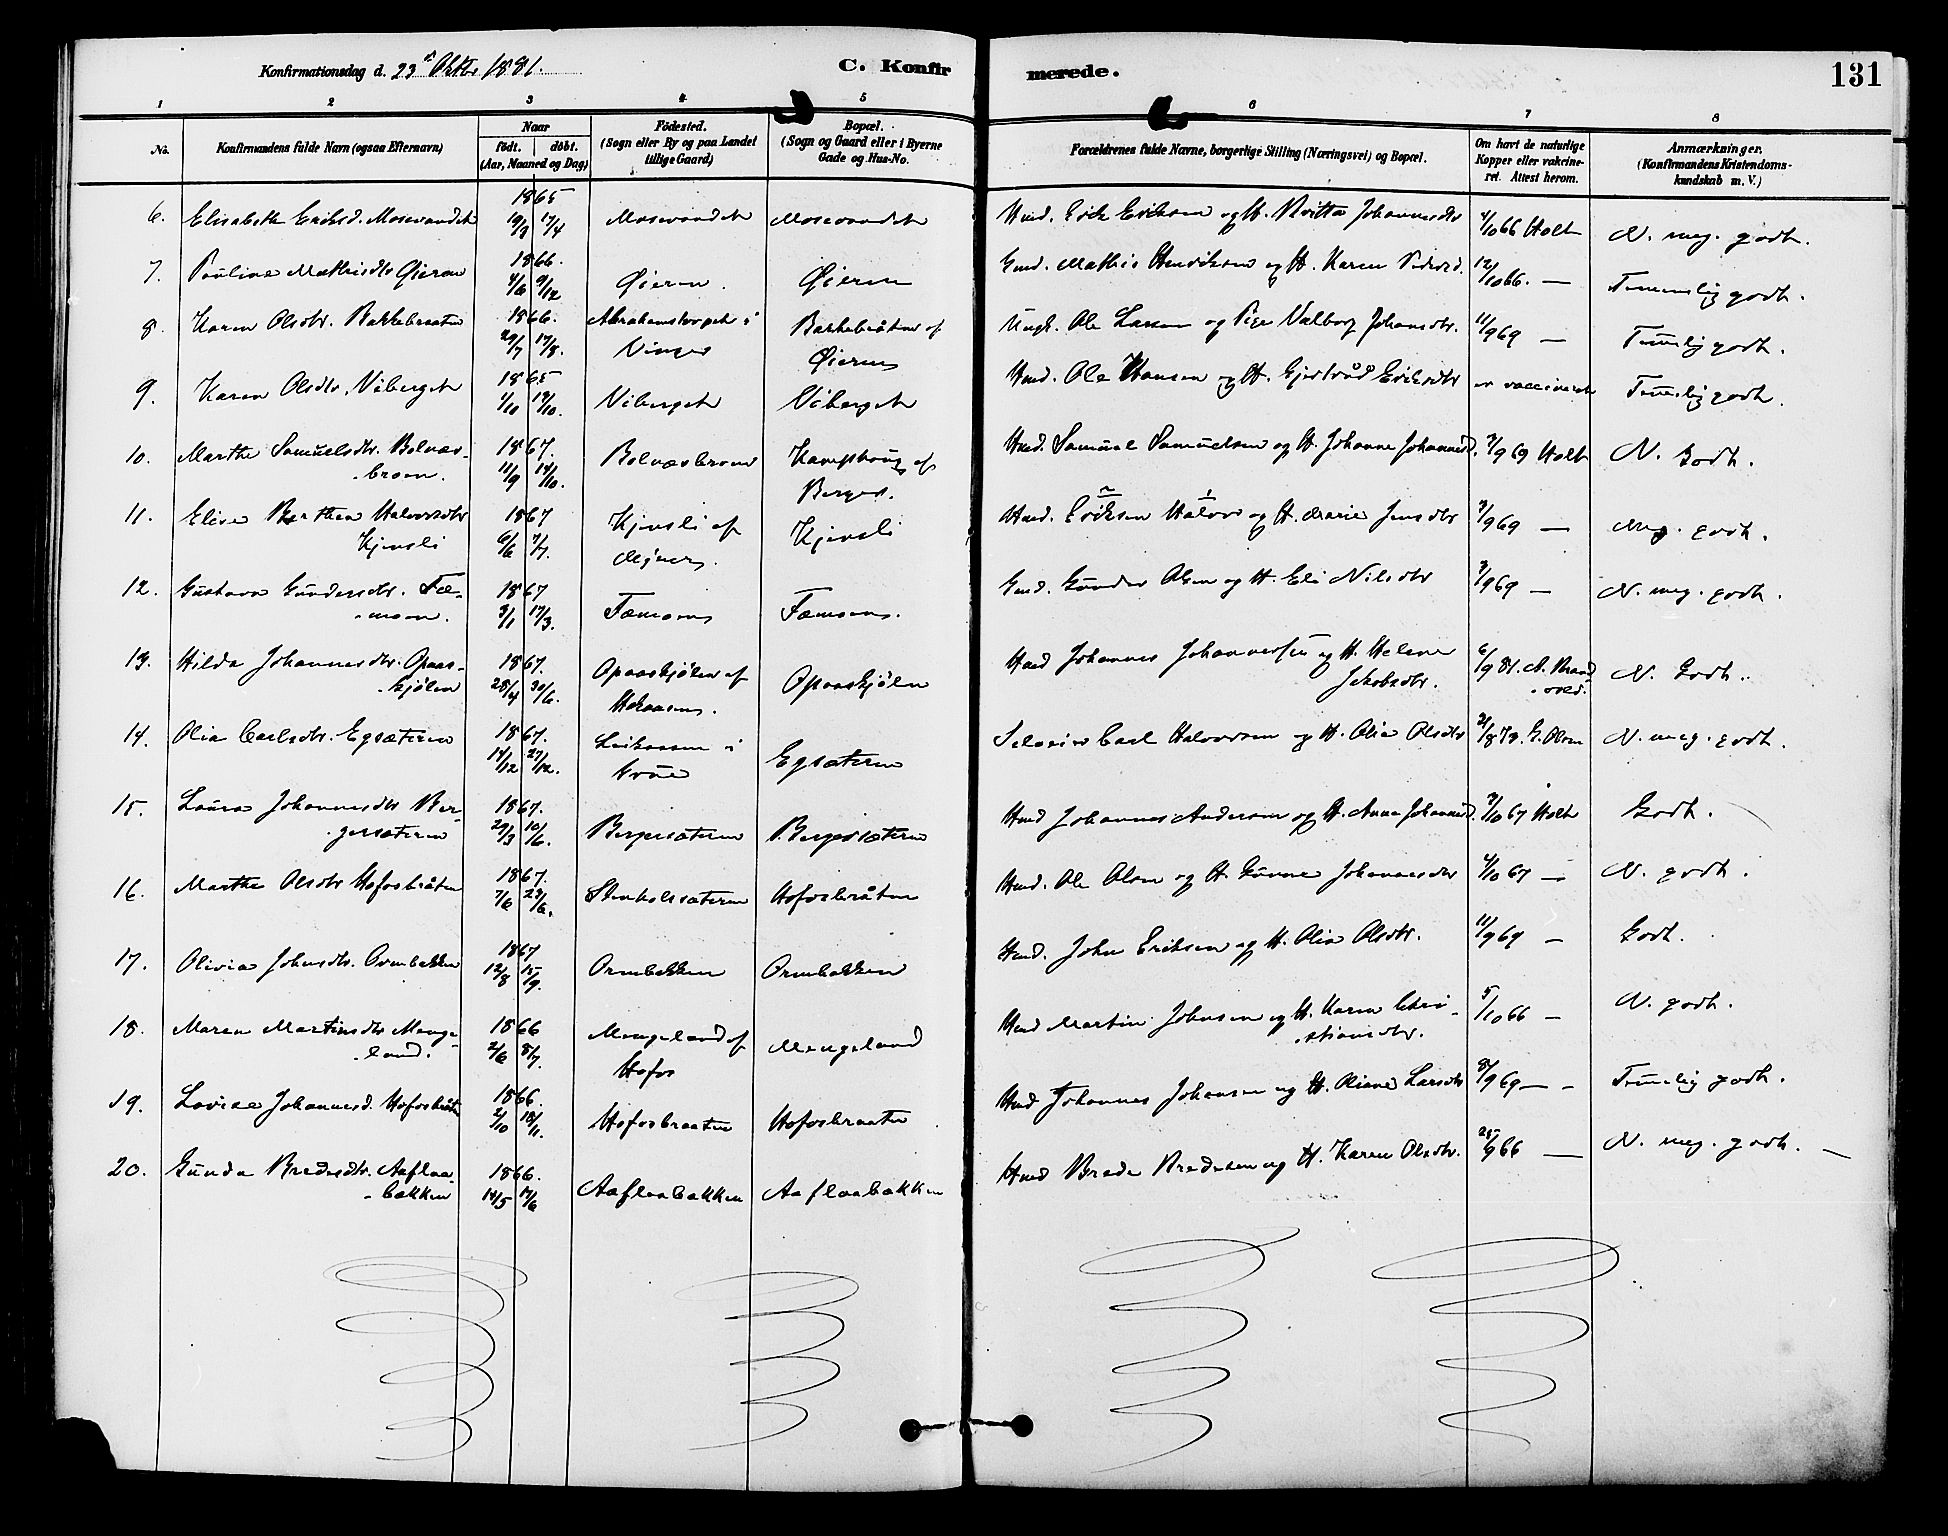 Konfirmationsdag d. 23de Oktbr 1881. C. Konfirmerede. 131
1 2 3 4 5 6 7 8
No. Konfirmandens fulde Navn (ogsaa Efternavn) Naar født. døbt. (Aar, Maaned og Dag) Fødested. (Sogn eller By og paa Landet tillige Gaard) Bopæl. (Sogn og Gaard eller i Byerne Gade og Hus-No. Forældrenes fulde Navne, borgerlige Stilling (Næringsvei) og Bopæl. Om havt de naturlige Kopper eller vakcineret. Attest herom. Anmærkninger. (Konfirmandens Kristendomskundskab m. V.)
6. Elisabeth Eriksd. Mosevandet 1865 19/3 17/4 Mosevandet Mosevandet Hmd. Erik Eriksen og H. Britta Johannesdtr 4/10 66 Holt N. meg. godt.
7. Pauline Mathisdtr Øieren 1866. 4/6 9/12 Øieren. Øieren Gmd. Mathis Henriksen og H. Karen Pedersd. 12/10 66. — Temmelig godt.
8. Karen Olsdtr. Bakkebraaten 1866. 29/7 19/8. Abrahamstorpet i Vinger Bakkebråten af Øieren Ungk. Ole Larsen og Pige Valborg Johansdtr. 11/9 69 — Temmelig godt.
9. Karen Olsdtr. Viberget 1865 1/10 19/10. Viberget Viberget Hmd. Ole Hansen og H. Gjertrud Eriksdtr er vaccineret Temmelig godt.
10. Marthe Samuelsdtr. Bolnæs-
-broen. 1867. 11/9 14/10. Bolnæsbroen Kampihaug af Berger. Hmd. Samuel Samuelsen og H. Johanne Johannesd. 3/9 69 Holt N. Godt.
11. Elise Berthea Halvorsdtr
Kjensli 1867 6/6 7/7. Kjensli af Mejner. Kjensli Hmd. Eriksen Halvor og H. Marie Jensdtr 3/9 69 — Meg. godt.
12. Gustava Gundersdtr. Fæ-
-moen. 1867 3/1 17/3. Fæmoen Fæmoen. Gmd. Gunder Olsen og H. Eli Nilsdtr 3/9 69 — N. meg. godt.
13. Hilda Johannesdtr. Opaas-
-kjølen 1867. 28/4 30/6. Opaaskjølen af Opaaskjølen Hmd Johannes Johannessen og H. Helene
Jakobsdtr. 6/9 81. N. Godt.
14. Olia Carlsdtr. Egsæteren 1867. 14/12 27/12. Egsæteren Selveier Carl Halvorsen og H. Olia Olsdtr 21/8 73. G. Olsen N. meg. godt.
15. Laura Johannesdtr Ber-
-gersæteren 1867. 29/3 10/6. Bergersæteren Bergersæteren Hmd Johannes Andersen og H. Anne Johannesd. 3/10 67 Holt Godt.
16. Marthe Olsdtr Hofosbråten 1867. 7/6 23/6. Stenholsæteren Hofosbråten Hmd. Ole Olsen og H. Gunne Johannesdtr 4/10 67 — N. godt.
17. Olivia Johnsdtr. Ormbakken 1867 12/8 15/9. Ormbakken Ormbakken Hmd. John Eriksen og H. Olia Olsdtr. 11/9 69 — Godt.
18. Maren Martinsdtr Menge-
-land. 1866 2/6 8/7. Mengeland af Hofos Mengeland Hmd Martin Johnsen og H. Karen Chri-
-stiansdtr. 5/10 66 — N. godt.
19. Lovise Johannesd. Hofosbråten 1866. 2/10 18/11. Hofosbraaten Hofosbraaten Hmd Johannes Johansen og H. Oliane Larsdtr 8/9 69 — Temmelig godt.
20. Gunda Bredesdtr. Aaflaa-
-bakken 1866. 14/5 17/6 Aaflaabakken Aaflaabakken Hmd Brede Bredesen og H. Karen Olsdtr. 25/9 66 — N. meg. godt. —